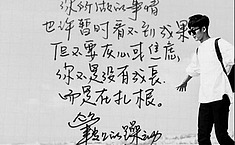 你所做的事情
也许暂时看不到成果
但不要灰心或焦虑
你不是没有成长
而是在扎根。